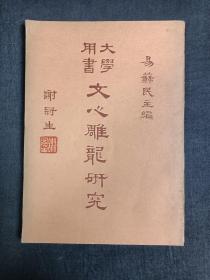 易蘇民主編
大學用書
文心雕龍研究
謝冠生